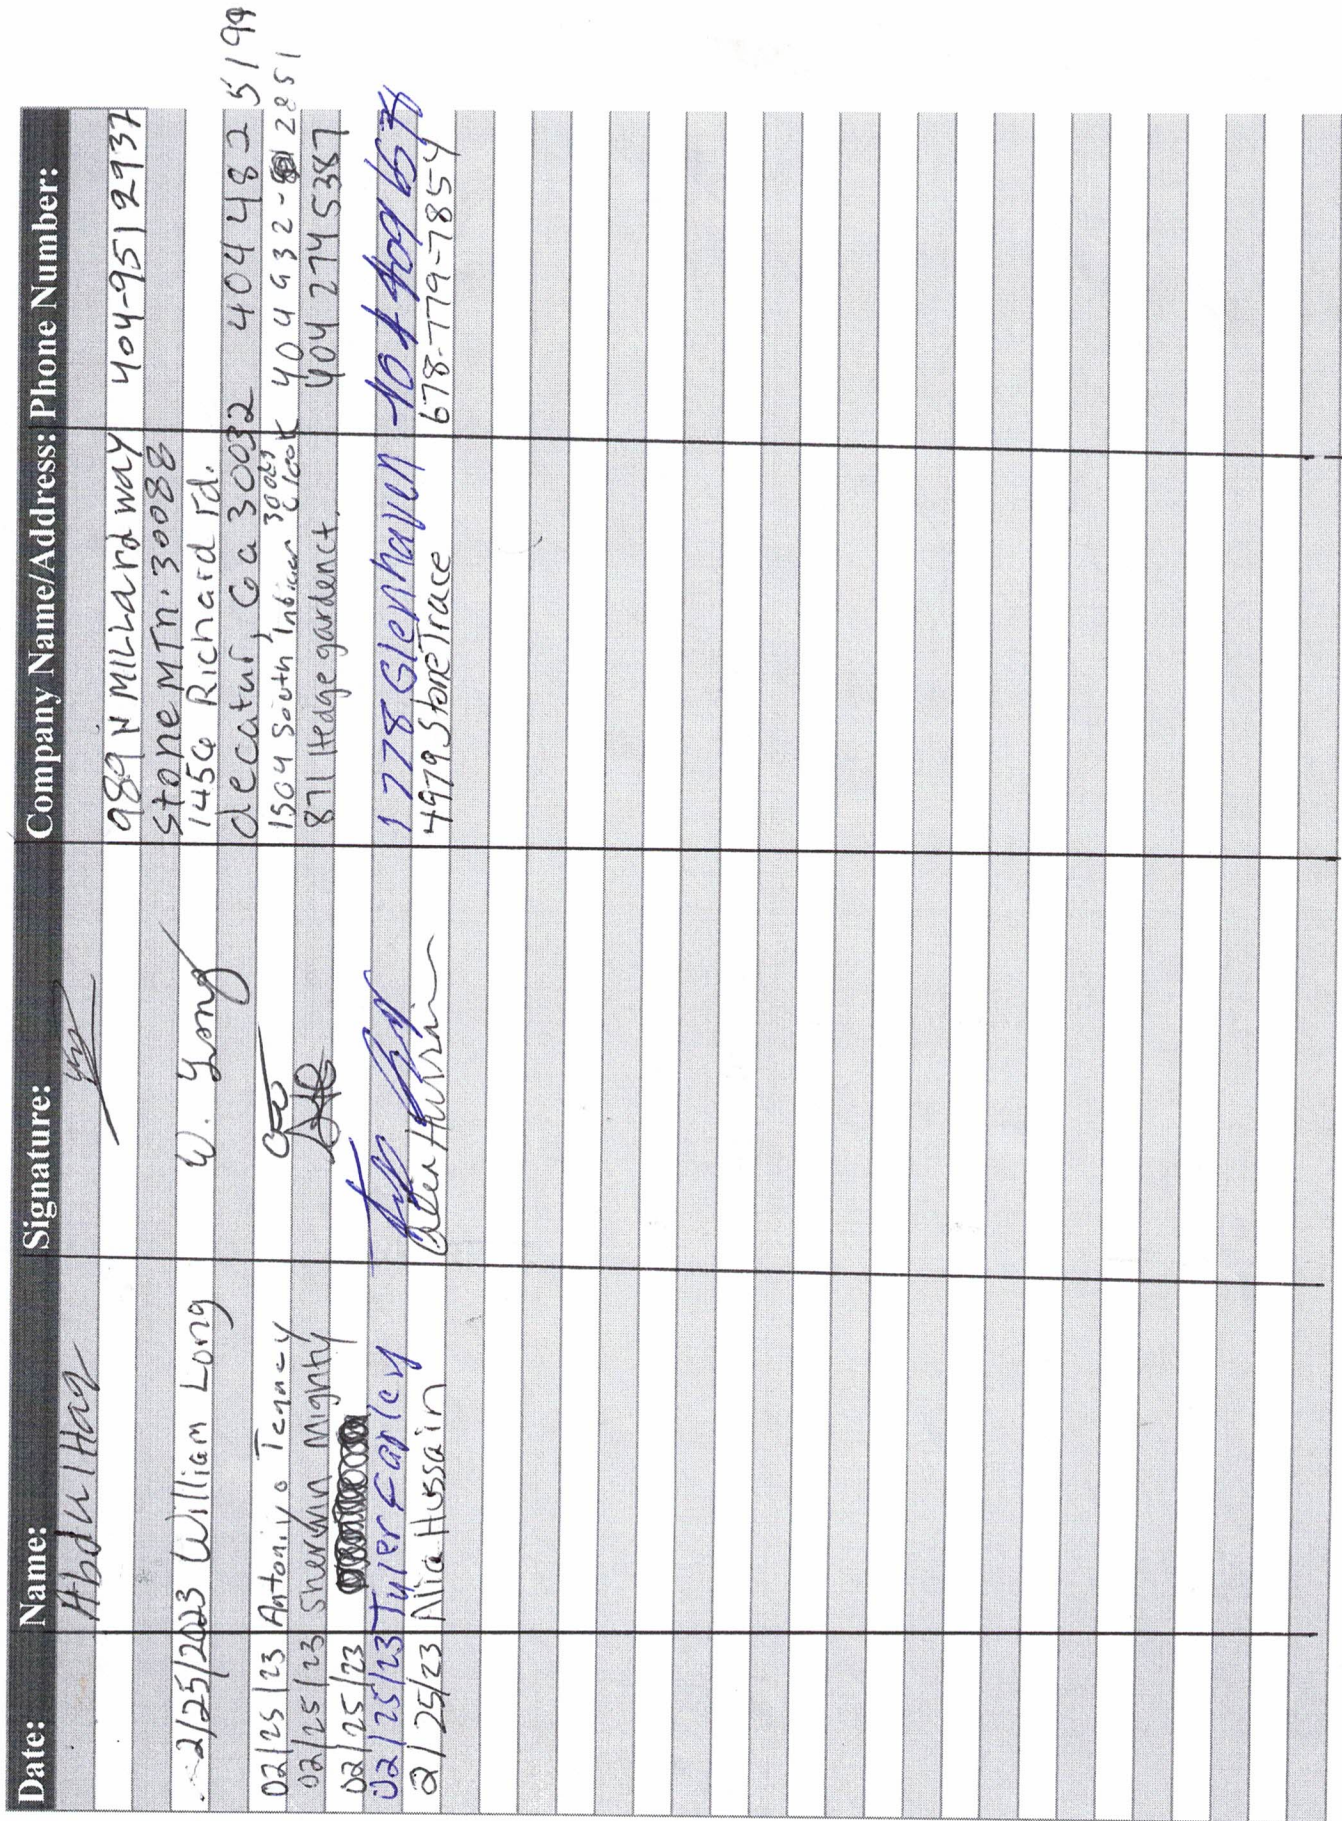 Date: Name: Signature: Company Name/Address: Phone Number:
Abdul Haq
989 N Millard way 404-951 2937
Stone MTn. 30088
2/25/2023 William Long W. Long 1456 Richard rd.
decatur, Ga 30032 404 482 5199
02/25/23 Antoniyo 1504 South 30083 404 932- 2851
02/25/23 Sherwin Mighty 871 Hedge garden ct. 404 274 5387
02/25/23
02/25/23 Tyler Farley 1778 Glenhaven 404 409
2/25/23 Alia Hussain 4979 Stone Trace 678-779-7854